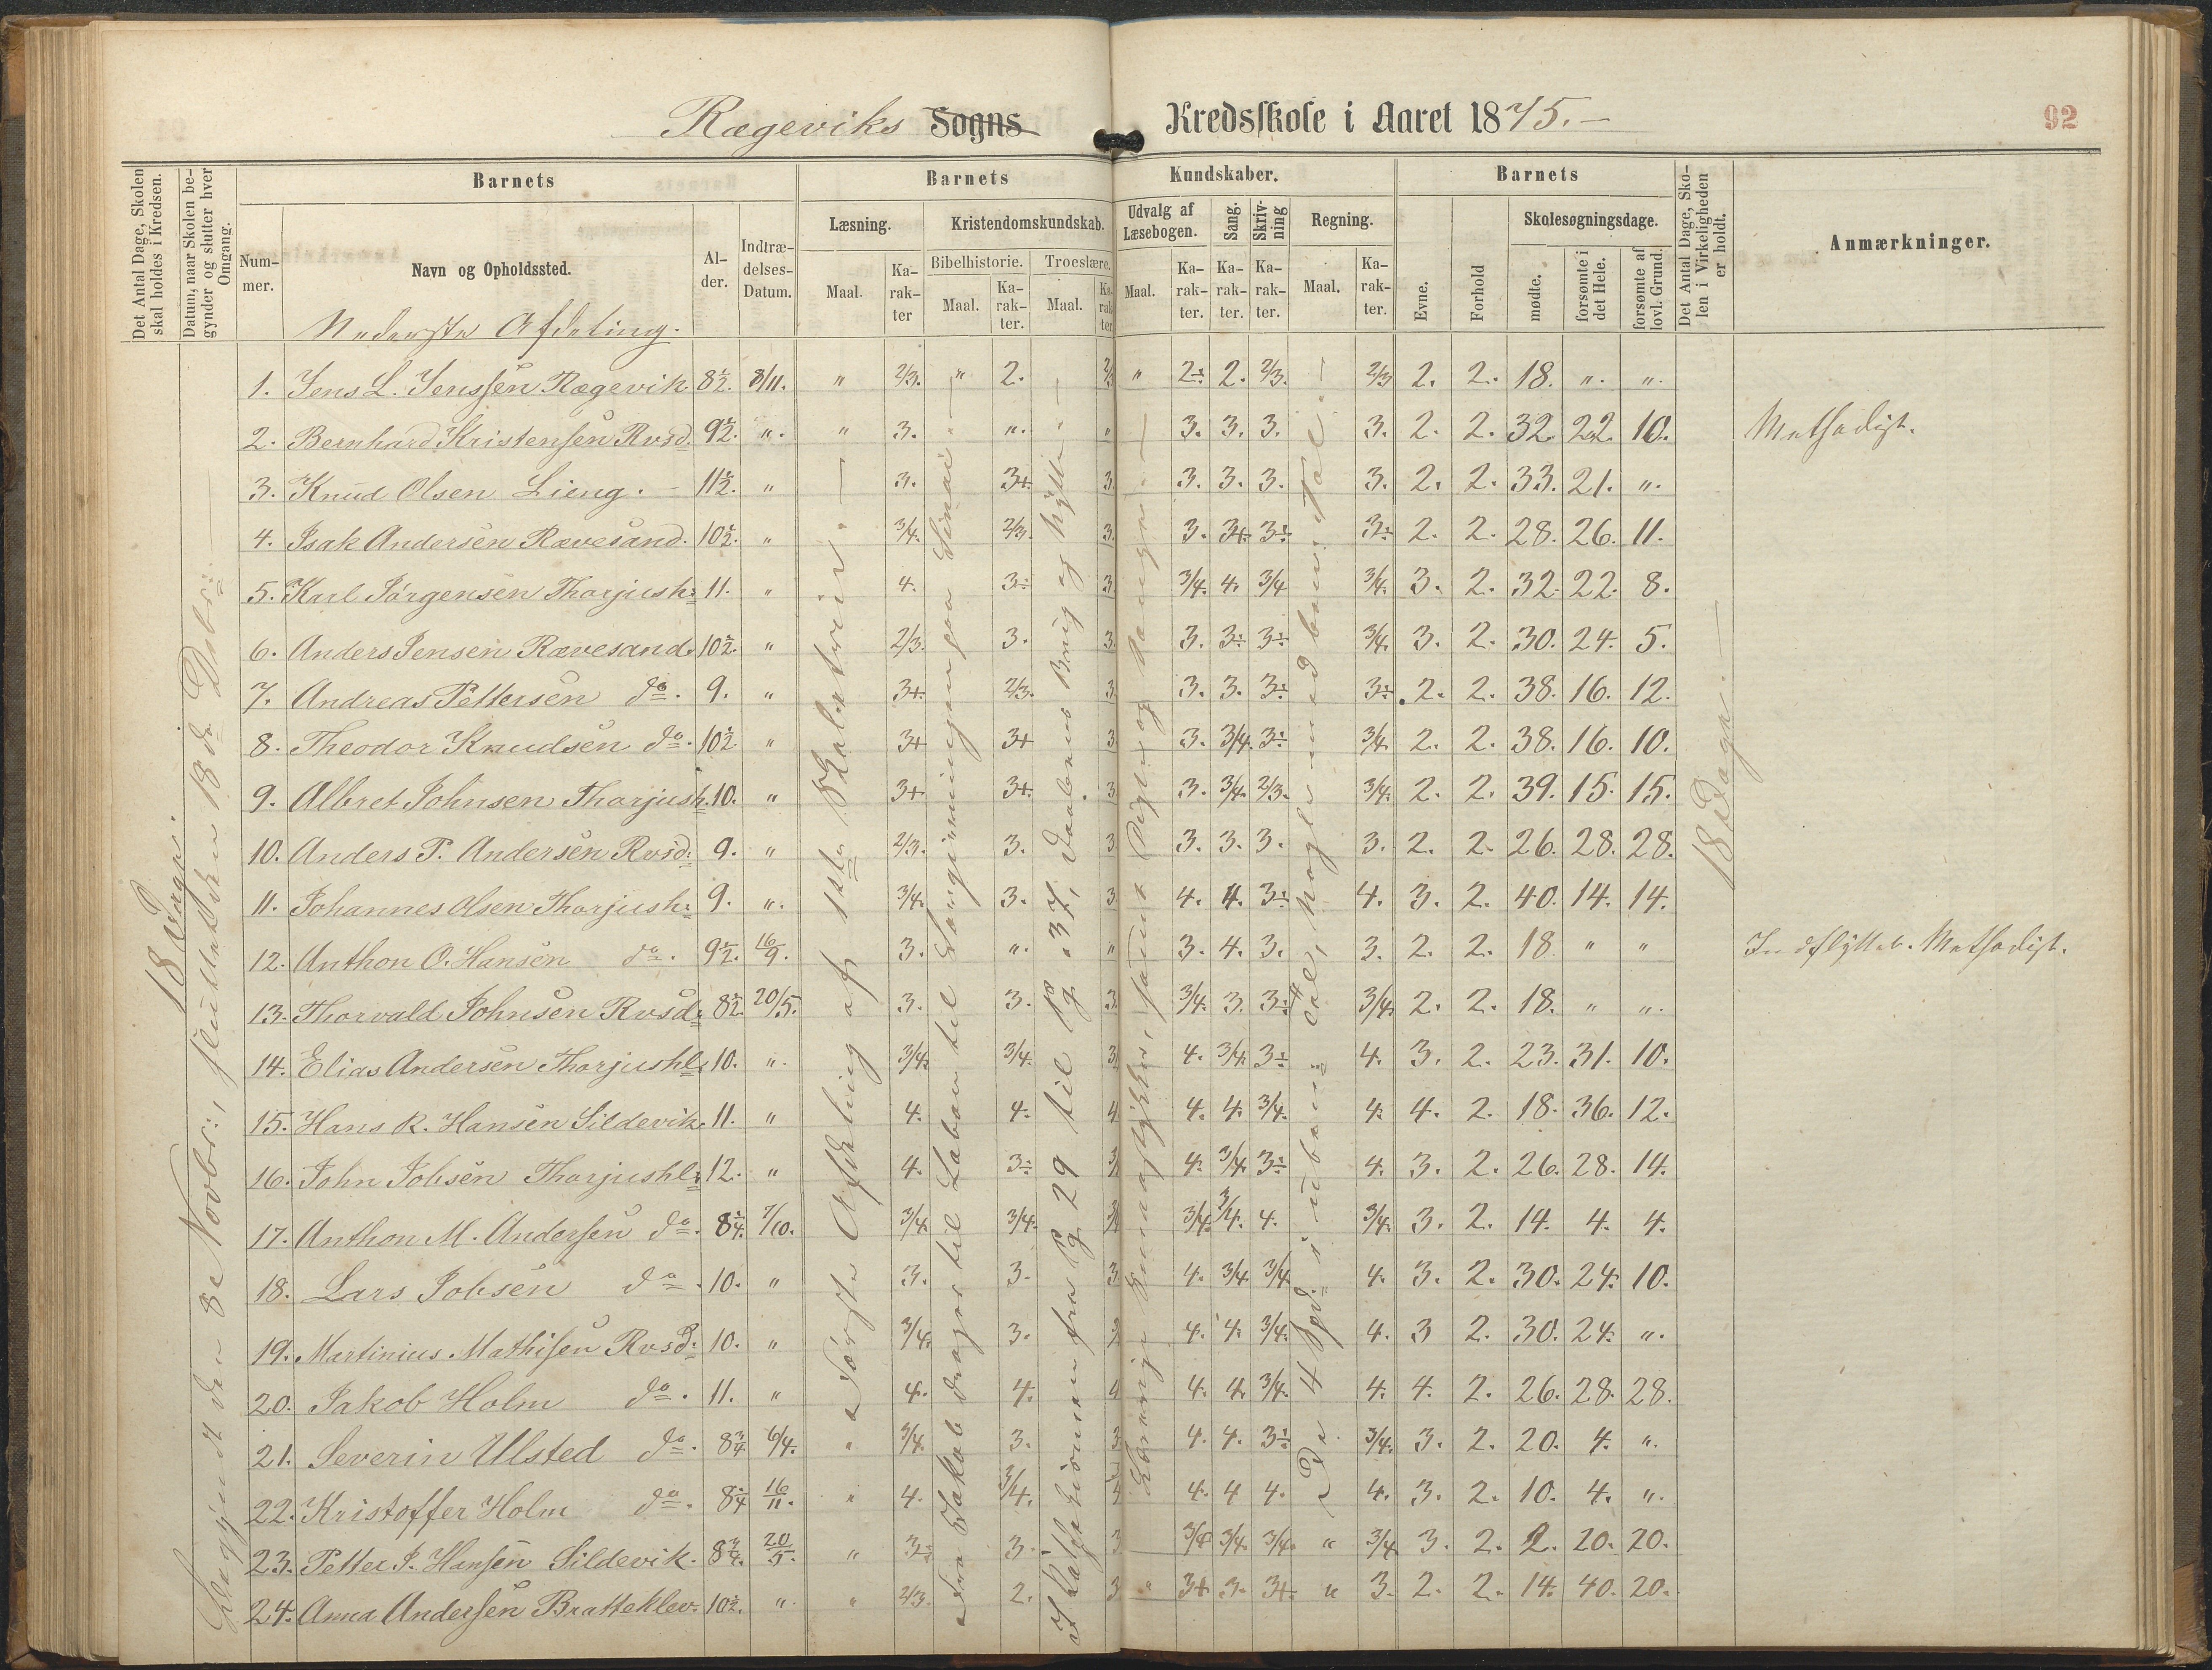 Rægeviks Sogns Kredsskole i Aaret 1875.-
92
Det Antal Dage, Skolen skal holdes i Kredsen.
Datum, naar Skolen begynder og slutter hver Omgang.
Barnets
Nummer.
Navn og Opholdssted.
Alder.
Indtrædelses-Datum.
Barnets Kundskaber.
Læsning.
Maal.
Karakter
Kristendomskundskab.
Bibelhistorie.
Maal.
Karakter.
Troeslære.
Maal.
Karakter
Udvalg af Læsebogen.
Maal.
Karakter.
Sang.
Karakter.
Skrivning
Karakter.
Regning.
Maal.
Karakter.
Barnets
Evne.
Forhold
Skolesøgningsdage.
mødte.
forsømte i det Hele.
forsømte af lovl. Grund.
Det Antal Dage, Skolen i Virkeligheden er holdt.
Anmærkninger.
Nederste Afdeling.
1. Jens L. Jenssen Rægevik. 8½. 8/11. " 2/3. " 2. " 2÷ 2. 2/3. 2/3 2. 2. 18. ". ".
2. Bernhard Kristensen Rvsd. 9½. ". " 3. ". " 3. 3. 3. 3. 2. 2. 32. 22. 10. Methodist.
3. Knud Olsen Lieng. - 11½. " 3. 3+. 3. 3. 3. 3. 3. 2. 2. 33. 21. ".
4. Isak Andersen Rævesand. 10½. " 3/4. 2/3. 3. 3. 3+ 3÷ 3÷ 2. 2. 28. 26. 11.
5. Karl Jørgensen Thorjush: 11. " 4. 3÷ 3. 3/4. 4. 3/4 3/4. 3. 2. 32. 22. 8.
6. Anders Jensen Rævesand. 10½. " 2/3. 3. 3. 3. 3÷ 3÷ 3/4. 3. 2. 30. 24. 5.
7. Andreas Pettersen do. 9. " 3+. 2/3. 3. 3. 3. 3÷ 3÷ 2. 2. 38. 16. 12.
8. Theodor Knudsen do. 10½ " 3+ 3+ 3 3. 3/4. 3÷ 3/4. 2. 2. 38. 16. 10.
9. Albret Johnsen Thorjush. 10. " 3+ 3+. 3 3. 3/4. 2/3. 3/4. 2. 2. 39. 15. 15.
10. Anders P. Andersen Rvsd: 9. " 2/3. 3. 3 3. 3. 3. 3. 2. 2. 26. 28. 28.
11. Johannes Olsen Thorjush: 9. ". 3/4. 3. 3 4. 4. 3÷ 4. 3. 2. 40. 14. 14.
12. Anthon O. Hansen do. 9½. 16/9. 3. ". " 3. 4. 3. 3. 2. 2. 18. " " Indflyttet. Methodist.
13. Thorvald Johnsen Rvsd: 8½. 20/5. 3. 3. 3. 3/4. 3. 3÷ 3/4. 2. 2. 18. " ".
14. Elias Andersen Thorjushl: 10. ". 3/4. 3/4. 3. 4. 3/4. 3÷ 4. 3. 2. 23. 31. 10.
15. Hans R. Hansen Sildevik. 11. " 4. 4. 4 4. 4. 3/4. 4. 4. 2. 18. 36. 12.
16. John Jobsen Thorjushl: 12. " 4. 3÷ 4. 3/4. 3÷ 4. 3. 2. 26. 28. 14.
17. Anthon M. Andersen do. 8¼. 7/10. 3/4. 3/4. 3/4. 3/4. 4. 3/4. 3. 2. 14. 4. 4.
18. Lars Jobsen do. 10. " 3. 3. 3 4. 3/4. 3/4. 4. 3. 2. 30. 24. 10.
19. Martinius Mathisen Rvsd: 10. " 3/4. 3. 4. 4. 3/4. 4. 3 2. 30. 24. ".
20. Jakob Holm do. 11. " 4. 4. 4 4. 4. 3/4. 4. 4. 2. 26. 28. 28.
21. Severin Ulsted do. 8¾ 6/4. " 3/4. 3. 3 4. 4. 3÷ 3/4. 3. 2. 20. 4. ".
22. Kristoffer Holm do. 8¼ 16/11. " 4. 3/4. 4. 4 4. 4. 3. 2. 10. 4. ".
23. Petter J. Hansen Sildevik. 8¾. 20/5. " 3÷ 3. 3 3/4 3/4. 3/4. " 3/4 3. 2. 2. 20. 20.
24. Anna Andersen Bratteklev. 10½. ". " 2/3. 2. 3 " 3+ 3. 3+. " 3. 2. 2. 14. 40. 20.
18 Dage.
Begyndt den 8e Novbr:, sluttet den 18de Debr:
Første Afdeling af 1ste Skoletrin.
Fra Jakob drager til Laban til Lovgivningen paa Sinai
Katekismen fra Pg 29 til Pg. 37, Daabens Brug og Nytte
De 4 Spd: i ubenævnte Tal, nogle med benævnte Tal.
18 Dage.